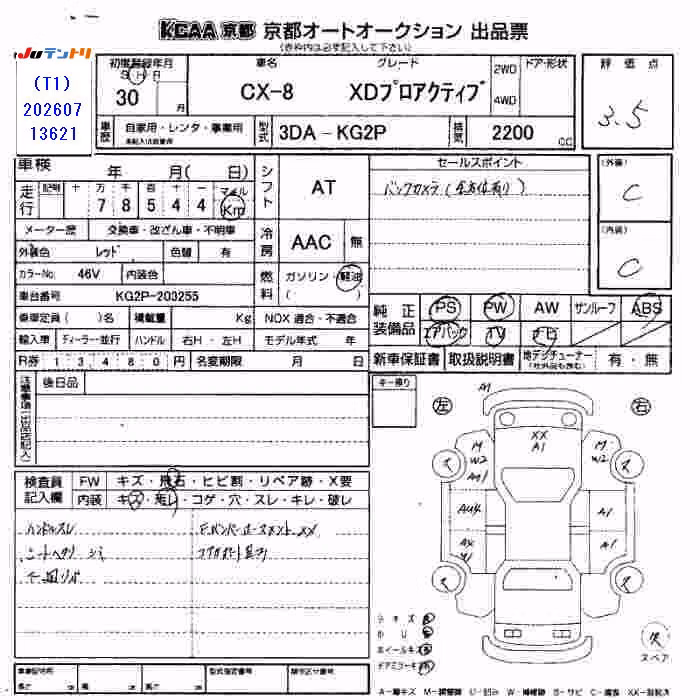 KCAA 京都 京都オートオークション 出品票
(赤枠内は必ず記入して下さい)
JUテントリ
(T1)
202607
13621
初度登録年月
S H R
30 月
車名
CX-8
グレード
XDプロアクティブ
2WD
4WD
ドア・形状
評価点
3.5
車歴
自家用・レンタ・事業用
型式
3DA-KG2P
排気
2200 CC
車検 年 月( 日)
走行
十 万 千 百 十 一
7 8 5 4 4
マイル
Km
シフト
AT
セールスポイント
バックカメラ
(外装)
C
(内装)
C
メーター歴
交換車・改ざん車・不明車
外装色
レッド
色替
有
冷房
AAC
無
カラーNo.
46V
内装色
燃料
ガソリン・軽油
( )
車台番号
KG2P-203255
乗車定員( )名
積載量
Kg
NOX 適合・不適合
純正装備品
PS
PW
AW
サンルーフ
ABS
エアバック
TV
ナビ
輸入車
ディーラー・並行
ハンドル
右H・左H
モデル年式 年
R券
13480円
名変期限 月 日
新車保証書
取扱説明書
地デジチューナー
(社外品も含む)
有・無
注意事項(出品店記入)
後日品
キー預り
左
右
A1
XX
A1
M
W2
M
W2
A1
A1
検査員記入欄
FW
キズ・飛石・ヒビ割・リペア跡・X要
内装
キズ・汚レ・コゲ・穴・スレ・キレ・破レ
ハンドルスレ
シートヘタリ シミ
スペア
ホイールキズ
ドアミラーキズ
車両記述用
長さ
cm
幅
cm
高さ
cm
型式指定番号
類別区分番号